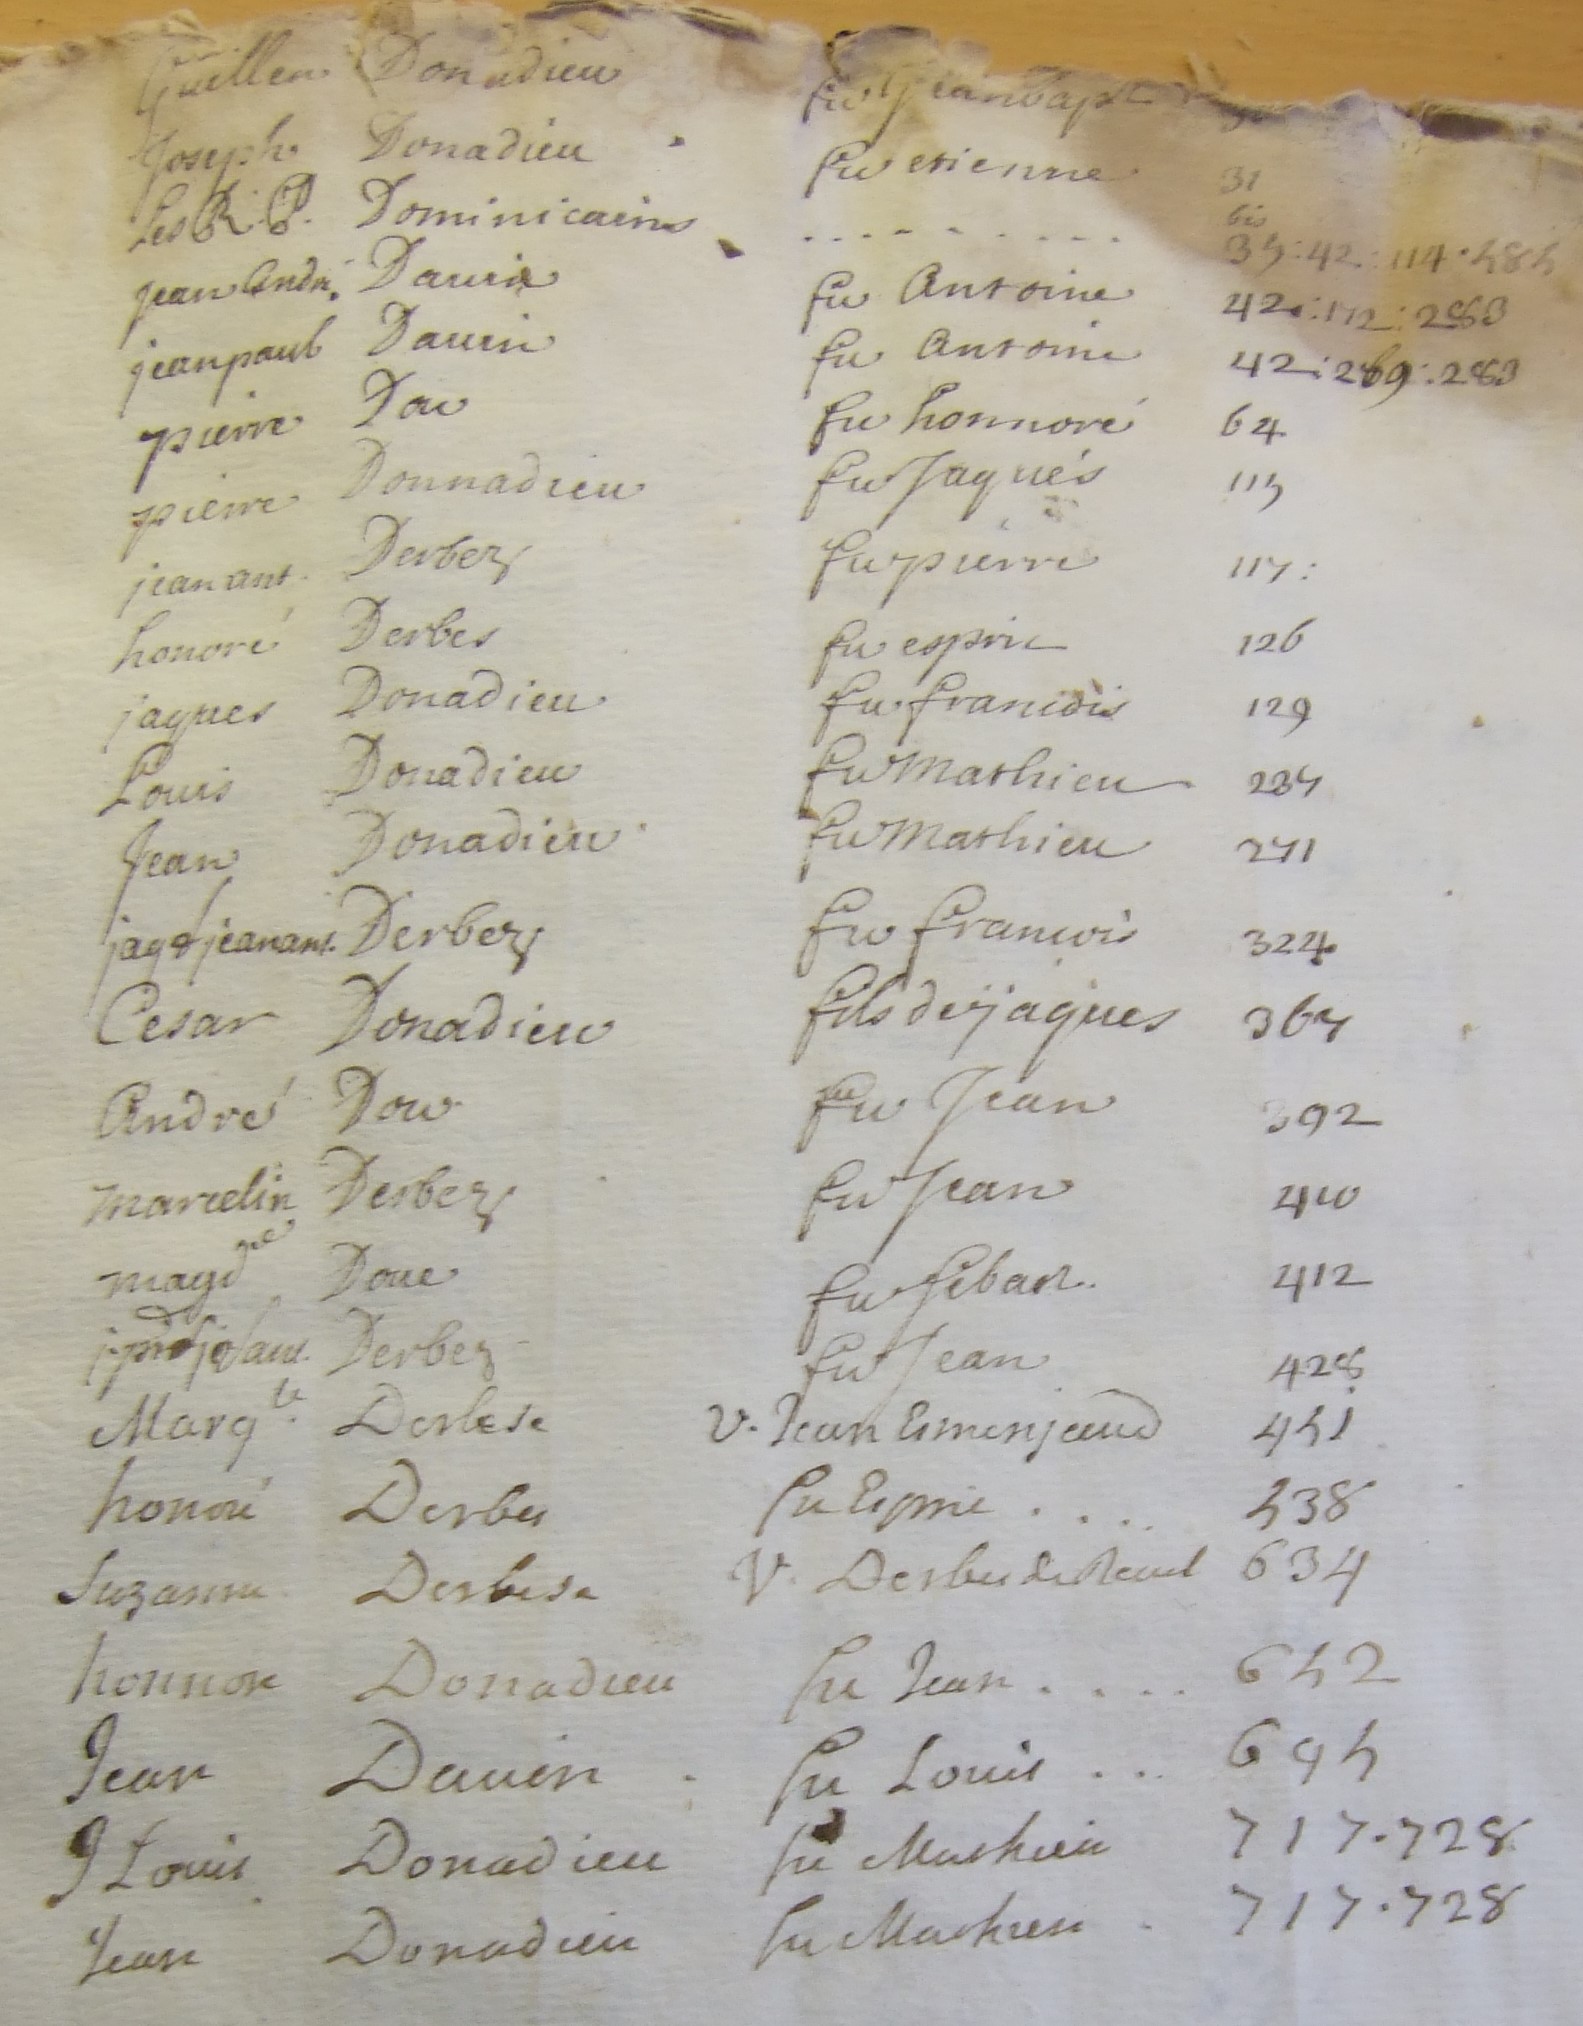 Guillen Donadieu fu Jeanbapt
Joseph Donadieu fu etienne 31
bis
Les R. P. Dominicains . . . . . . . . . 35:42:114.585
jean André Dauin fu Antoine 42:172:283
jeanpaul Dauin fu Antoine 42:269:283
pierre Dou fu honnoré 64
pierre Donnadieu fu Jaques 115
jean ant. Derbez fu pierre 117:
honoré Derbes fu esprit 126
jaques Donadieu fu francois 129
Louis Donadieu fu Mathieu 237
Jean Donadieu fu Mathieu 271
jaq & jean ant. Derbez fu francois 324
Cesar Donadieu fils de jaques 367
André Dou fu Jean 392
marcelin Derbez fu Jean 410
magdne Doue fu sebast. 412
Derbez fu Jean 428
Margte. Derbese v. Jean Esmenjaud 451
honoré Derbes fu Esprit . . . . 538
Suzanne Derbese V. Derbes de Revel 634
honnoré Donadieu fu Jean . . . . 652
Jean Dauin fu Louis . . . 695
J Louis Donadieu fu Mathieu 717.728
Jean Donadieu fu Mathieu . 717.728